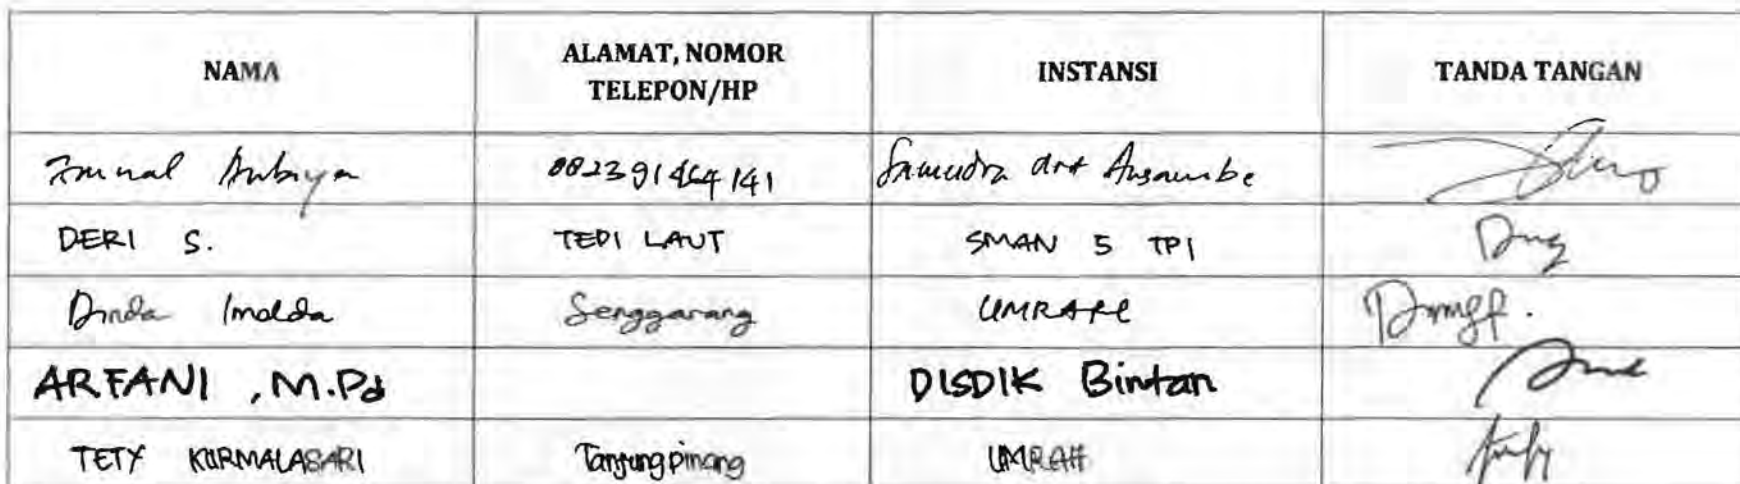 NAMA
ALAMAT, NOMOR
TELEPON/HP
INSTANSI
TANDA TANGAN
Samudra Art
DERI S. TEPI LAUT SMAN 5 TPI
Dinda Imelda Senggarang UMRAH
ARFANI, M.Pd DISDIK Bintan
TETY KURMALASARI Tanjungpinang UMRAH